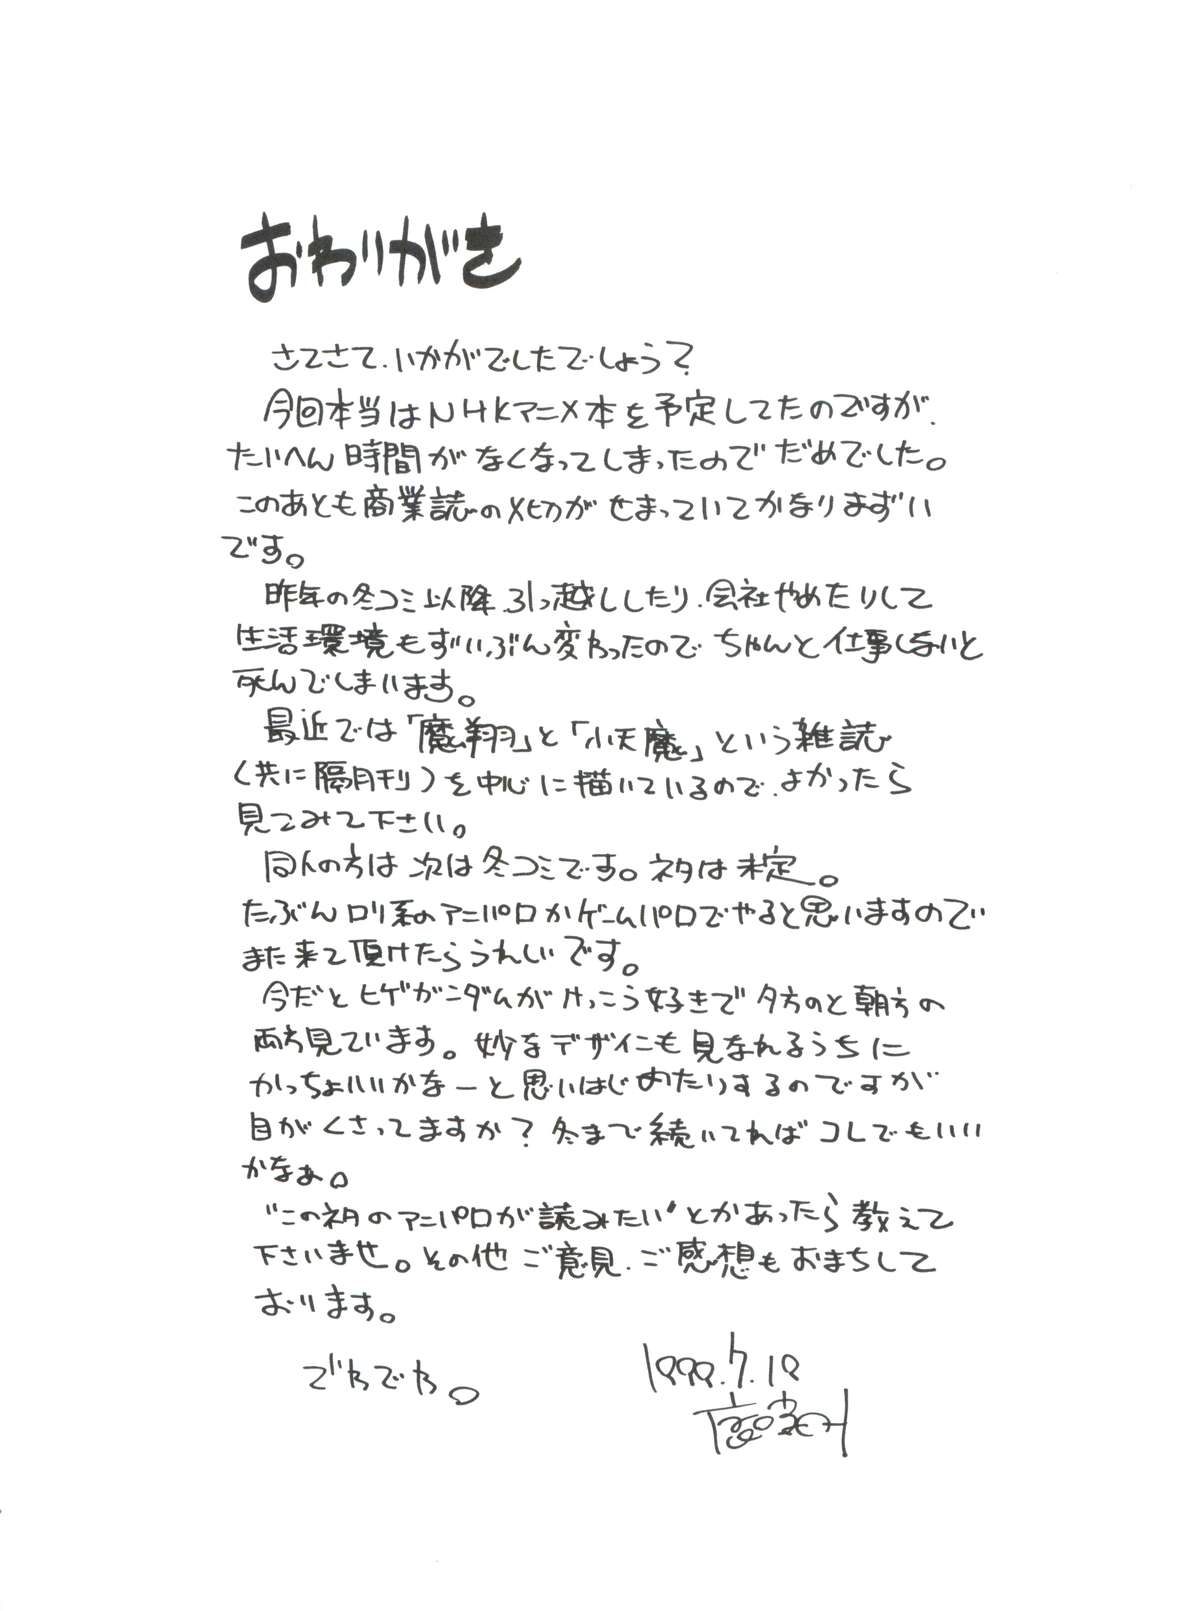 おわりがき
さてさて、いかがでしたでしょう?
今回本当はNHKアニメ本を予定してたのですが、
たいへん時間がなくなってしまったのでだめでした。
このあとも商業誌の〆切がせまっていてかなりまずい
です。
昨年の冬コミ以降、引っ越ししたり、会社やめたりして
生活環境もずいぶん変わったのでちゃんと仕事しないと
死んでしまいます。
最近では「魔翔」と「小天魔」という雑誌
(共に隔月刊)を中心に描いているので、よかったら
見てみて下さい。
同人の方は次は冬コミです。ネタは未定。
たぶんロリ系のアニパロかゲームパロでやると思いますので
また来て頂けたらうれしいです。
今だとヒゲガンダムがけっこう好きで夕方のと朝方の
両方見ています。妙なデザインも見なれるうちに
かっちょいいかなーと思いはじめたりするのですが
目がくさってますか?冬まで続いてればコレでもいい
かなぁ。
"この初のアニパロが読みたい"とかあったら教えて
下さいませ。その他ご意見、ご感想もおまちして
おります。
でわでわ。
1999.7.18